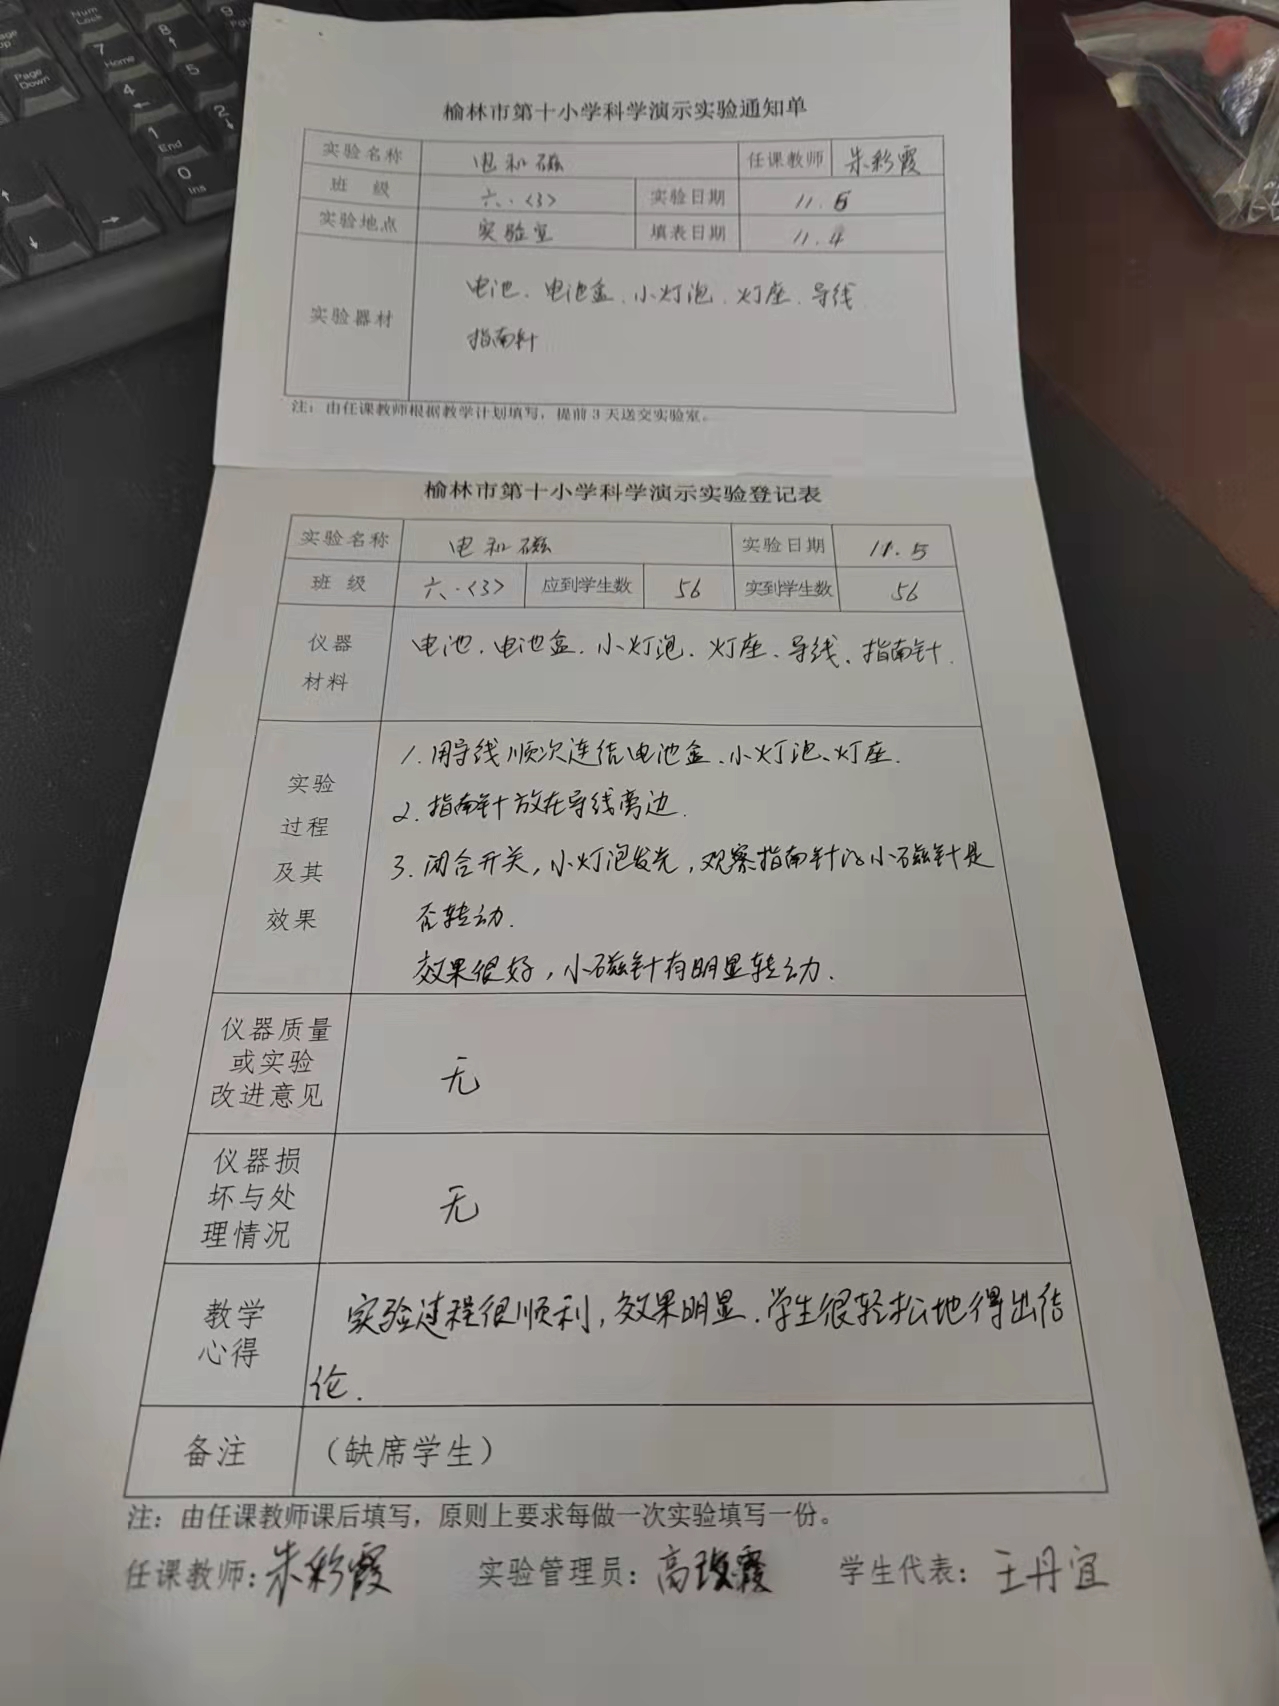 榆林市第十小学科学演示实验通知单
实验名称 电和磁 任课教师 朱彩霞
班 级 六.<3> 实验日期 11.5
实验地点 实验室 填表日期 11.4
实验器材 电池、电池盒、小灯泡、灯座、导线
指南针
注：由任课教师根据教学计划填写，提前3天送交实验室。
榆林市第十小学科学演示实验登记表
实验名称 电和磁 实验日期 11.5
班 级 六.<3> 应到学生数 56 实到学生数 56
仪器
材料
电池、电池盒、小灯泡、灯座、导线、指南针.
实验
过程
及其
效果
1.用导线顺次连结电池盒、小灯泡、灯座.
2.指南针放在导线旁边.
3.闭合开关，小灯泡发光，观察指南针的小磁针是
否转动.
效果很好，小磁针有明显转动.
仪器质量
或实验
改进意见
无
仪器损
坏与处
理情况
无
教学
心得
实验过程很顺利，效果明显.学生很轻松地得出结
论.
备注 （缺席学生）
注：由任课教师课后填写，原则上要求每做一次实验填写一份。
任课教师：朱彩霞 实验管理员：高霞 学生代表：王丹宜